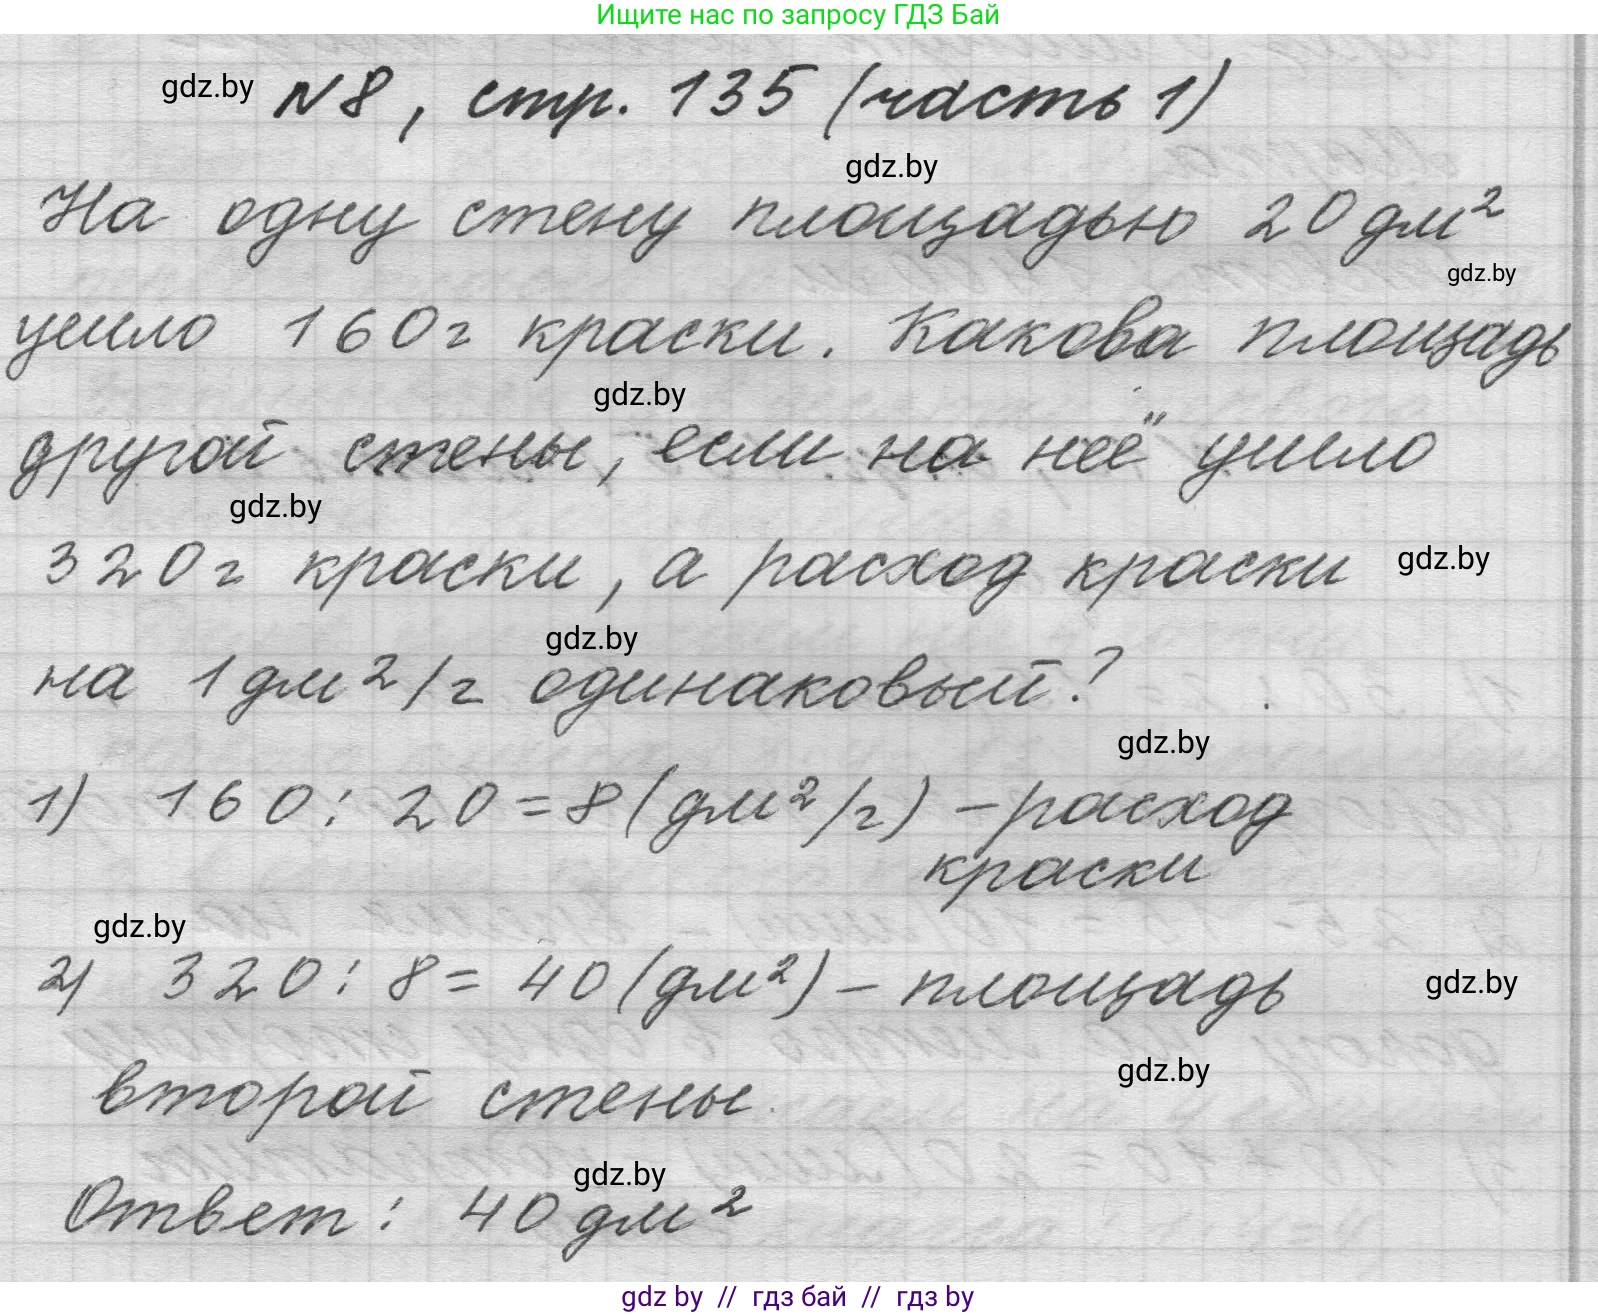 Ищите нас по запросу ГДЗ Бай
gdz.by
№8, стр. 135 (часть 1)
gdz.by
На одну стену площадью 20 дм²
gdz.by
ушло 160 г краски. Какова площадь
gdz.by
другой стены, если на неё ушло
gdz.by
320 г краски, а расход краски
gdz.by
gdz.by
на 1 дм²/г одинаковый?
gdz.by
1) 160 : 20 = 8 (дм²/г) – расход
краски
gdz.by
2) 320 : 8 = 40 (дм²) – площадь
gdz.by
gdz.by
второй стены.
gdz.by
Ответ: 40 дм²
gdz by // гдз бай // гдз by